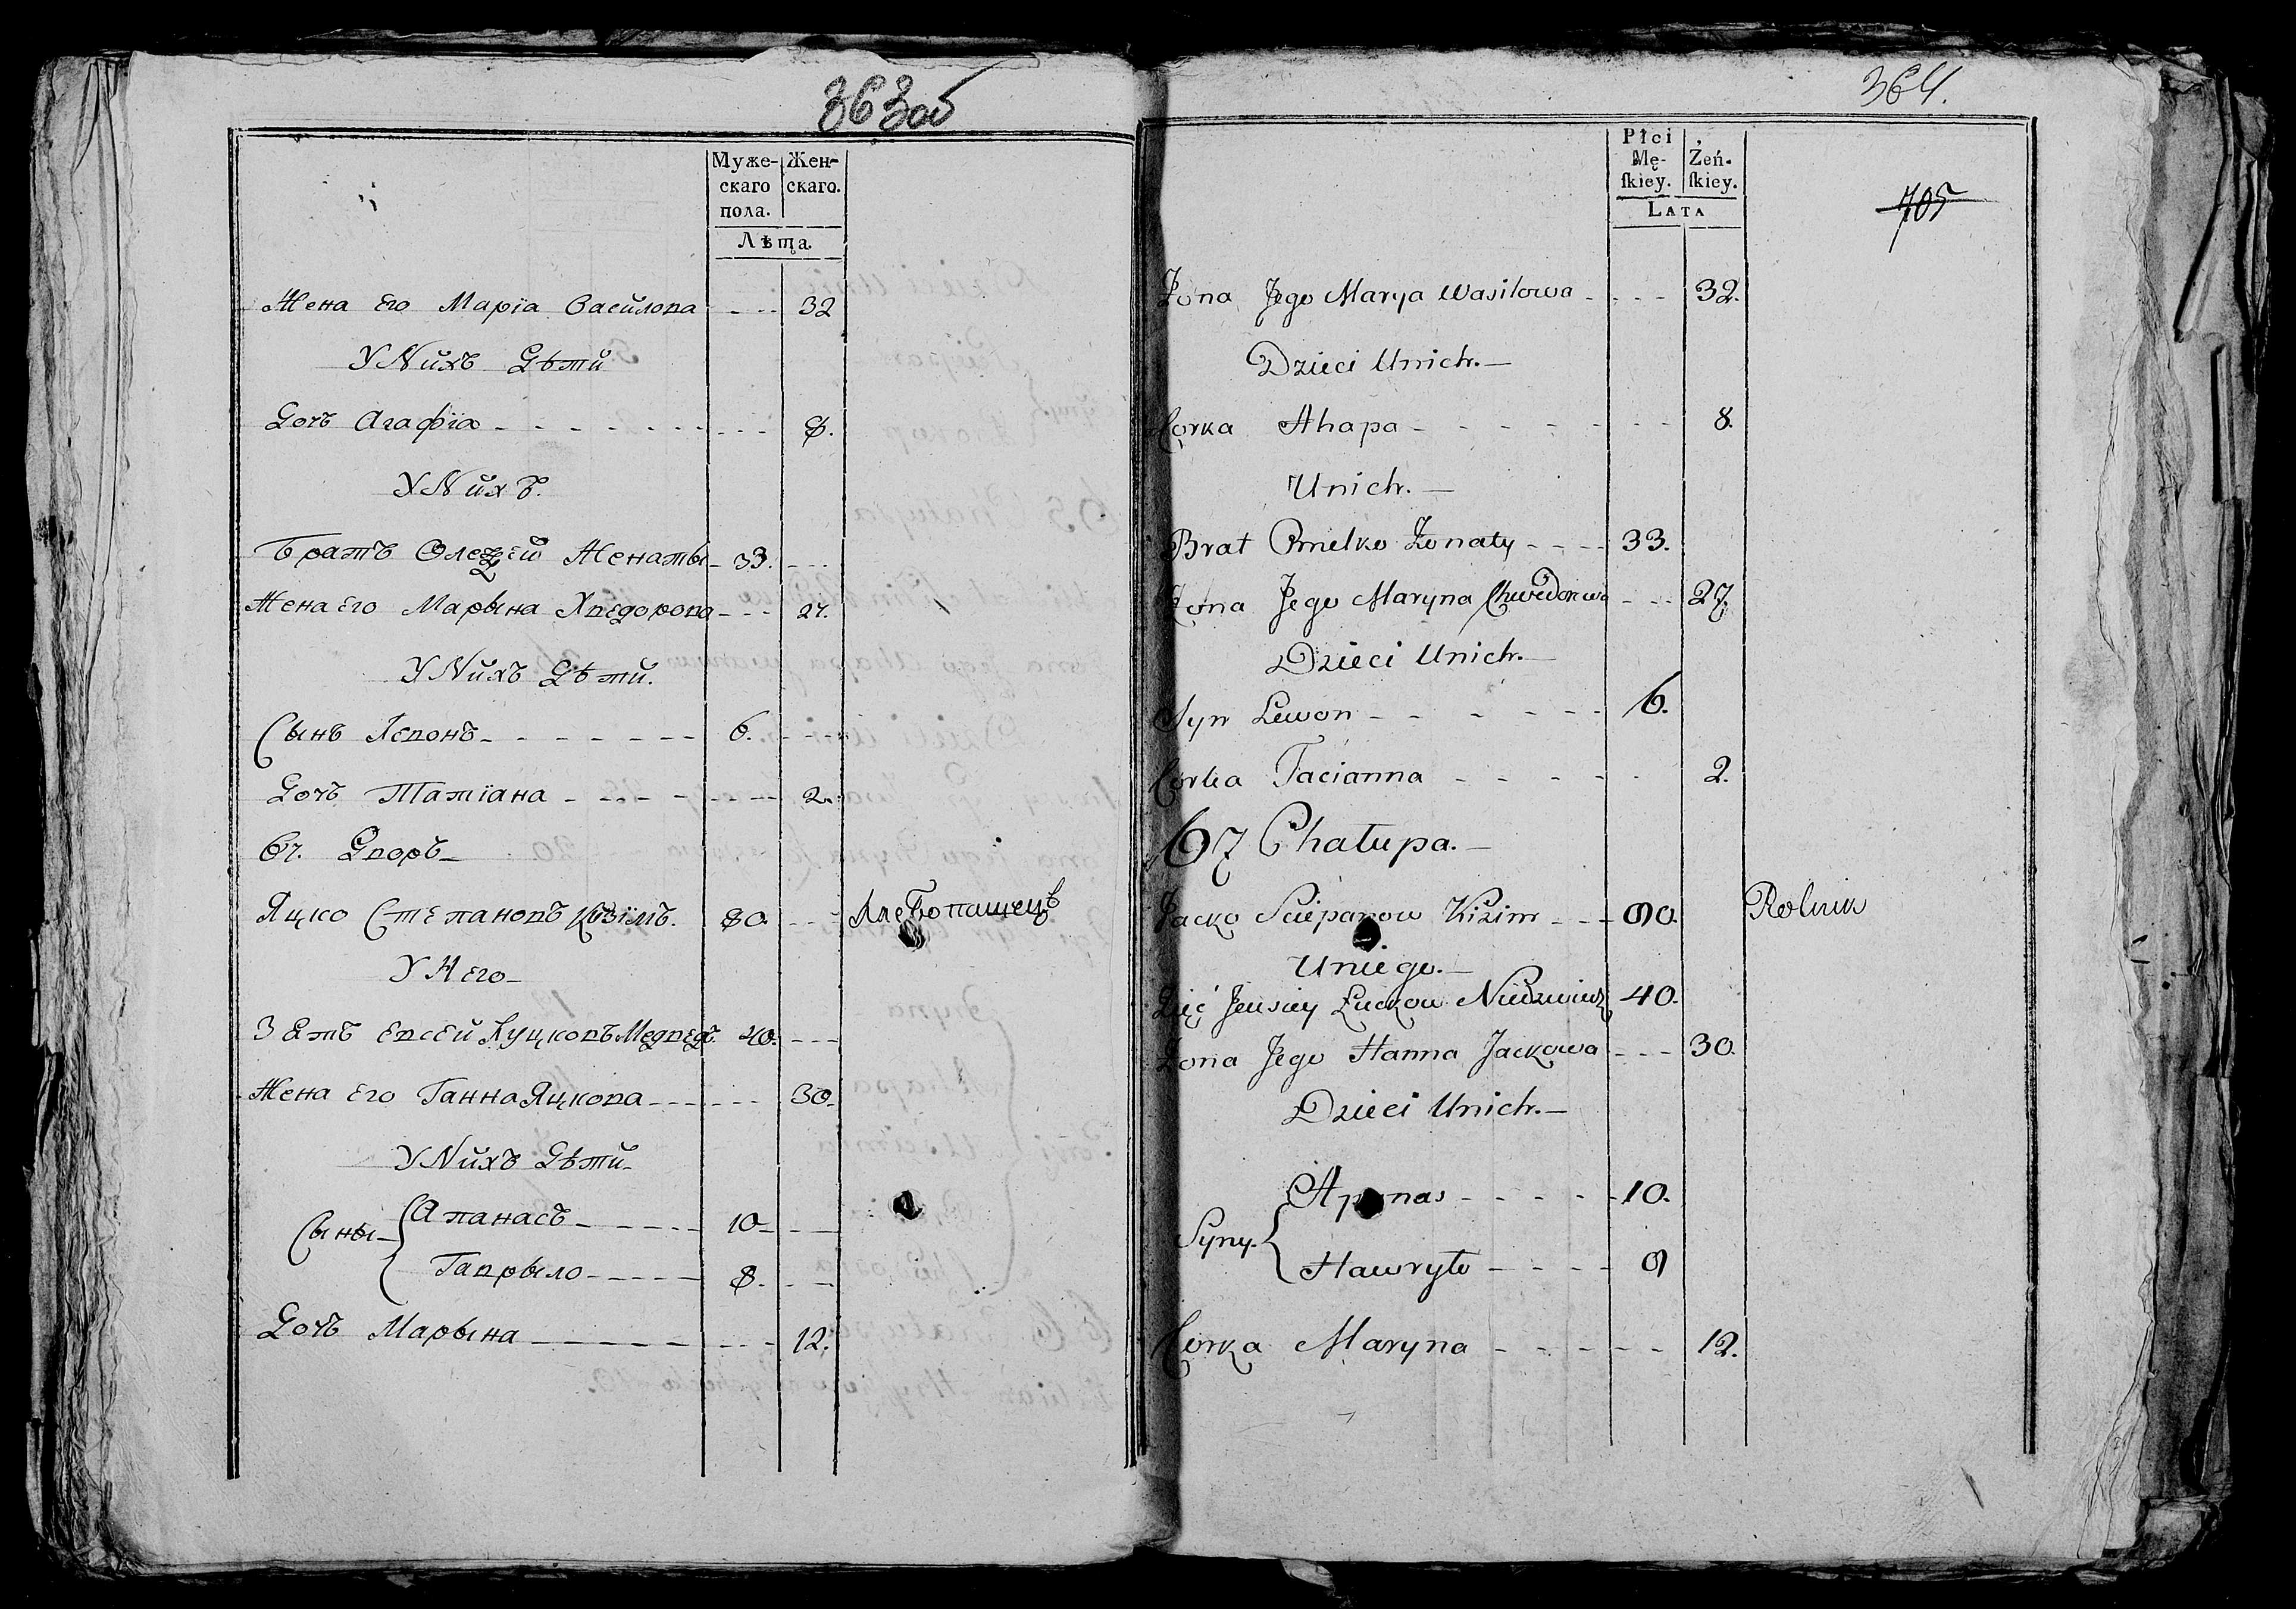 363об
Муже-
скаго
пола.
Жен-
скаго.
Лѣта.
Жена Его Маріа Васйлова - - - 32
У Нйхъ Дѣтй
Дочъ Агафіа - - - - - - - - - 8.
У Нйхъ.
Братъ Женаты - 33. - - -
Жена Его Марына Хведорова - - - 27.
У Нйхъ Дѣтй.
Сынъ Левонъ - - - - - - - 6. - - -
Дочъ Татіана - - - - - - - - 2.
67. Дворъ -
Яцко Степановъ Кизімъ. 80. - - - Хлебопашецъ
У Него -
Зять Евсей Луцковъ Медведь. 40. - - -
Жена Его Ганна Яцкова - - - - - - 30.
У Нйхъ Дѣтй -
Сыны - { Апанасъ - - - - - 10 - - -
Гаврыло - - - - - 8. - - -
Дочъ Марына - - - - - - - - - 12.
364.
Płci
Mę-
ſkiey.
Żeń-
ſkiey.
Lata
705
Żona Jego Marya Wasilowa - - - - 32.
Dzieci Unich. -
Corka Ahapa - - - - - - - - 8.
Unich. -
Brat Omelko Żonaty - - - - 33.
Żona Jego Maryna Chwedorowa - - - 27.
Dzieci Unich. -
Syn Lewon - - - - - - - 6.
Corka Tacianna - - - - - - 2.
67 Chałupa. -
Jacko Sciepanow Kizim - - - 90. Rolnik
Uniego. -
Zięć Jeusiey Łuckow Niedzwiedz 40.
Żona Jego Hanna Jackowa - - - 30.
Dzieci Unich. -
Syny. { Aponas - - - - - 10.
Hawryło - - - - - 9
Corka Maryna - - - - - - 12.